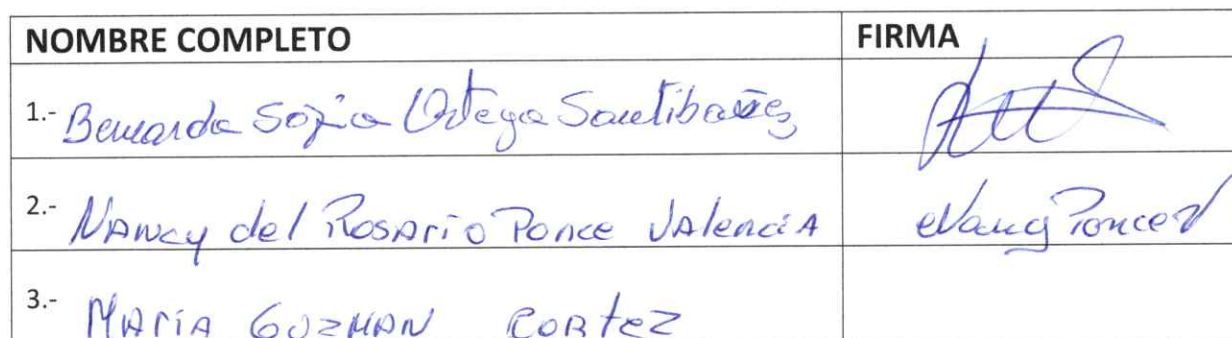 NOMBRE COMPLETO FIRMA
1.- Bernarda Sofia Ortega Santibañez
2.- Nancy del Rosario Ponce Valencia Nancy Ponce V
3.- Maria Guzman Cortez